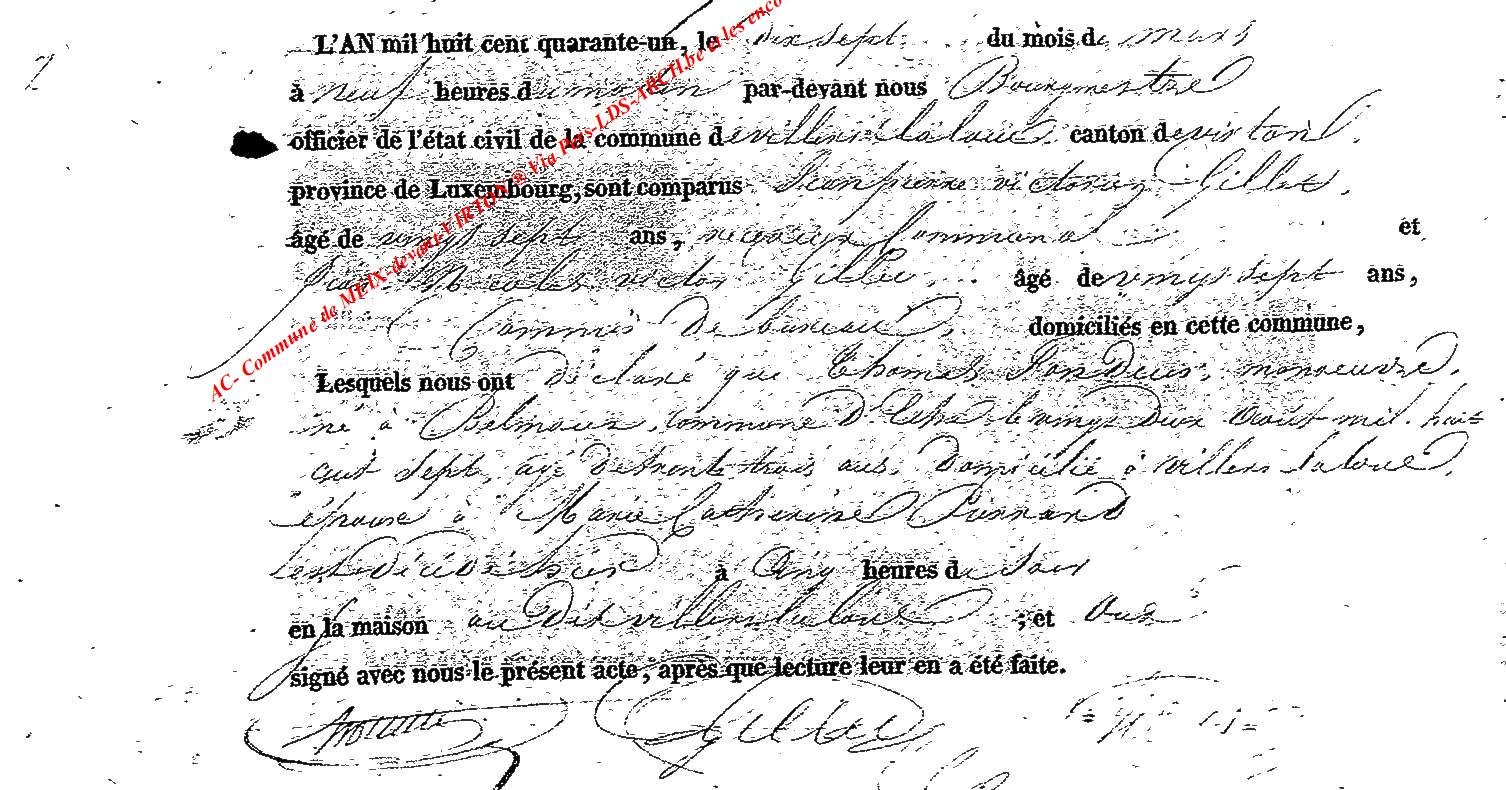 7
L'AN mil huit cent quarante-un, le dix sept du mois de mars
à neuf heures du matin par-devant nous Bourgmestre
officier de l'état civil de la commune de villers la loue canton de virton
province de Luxembourg, sont comparus Jean pierre victorin Gillet,
âgé de vingt sept ans, receveur Communal et
Jean Nicolas victor Gillet, âgé de vingt sept ans,
Commis de bureau, domiciliés en cette commune,
Lesquels nous ont déclaré que Thomas manoeuvre,
né à commune d'Ethe le vingt deux août mil huit
cent sept, agé de trente trois ans, domicilié à villers la loue,
épouse à Marie Catherine
est décédé hier à cinq heures du soir
en la maison au dit villers la loue ; et ont
signé avec nous le présent acte, après que lecture leur en a été faite.
Gillet
AC- Commune de MEIX-devant-VIRTON ® Via Pros-LDS-ARCH.be et les enco